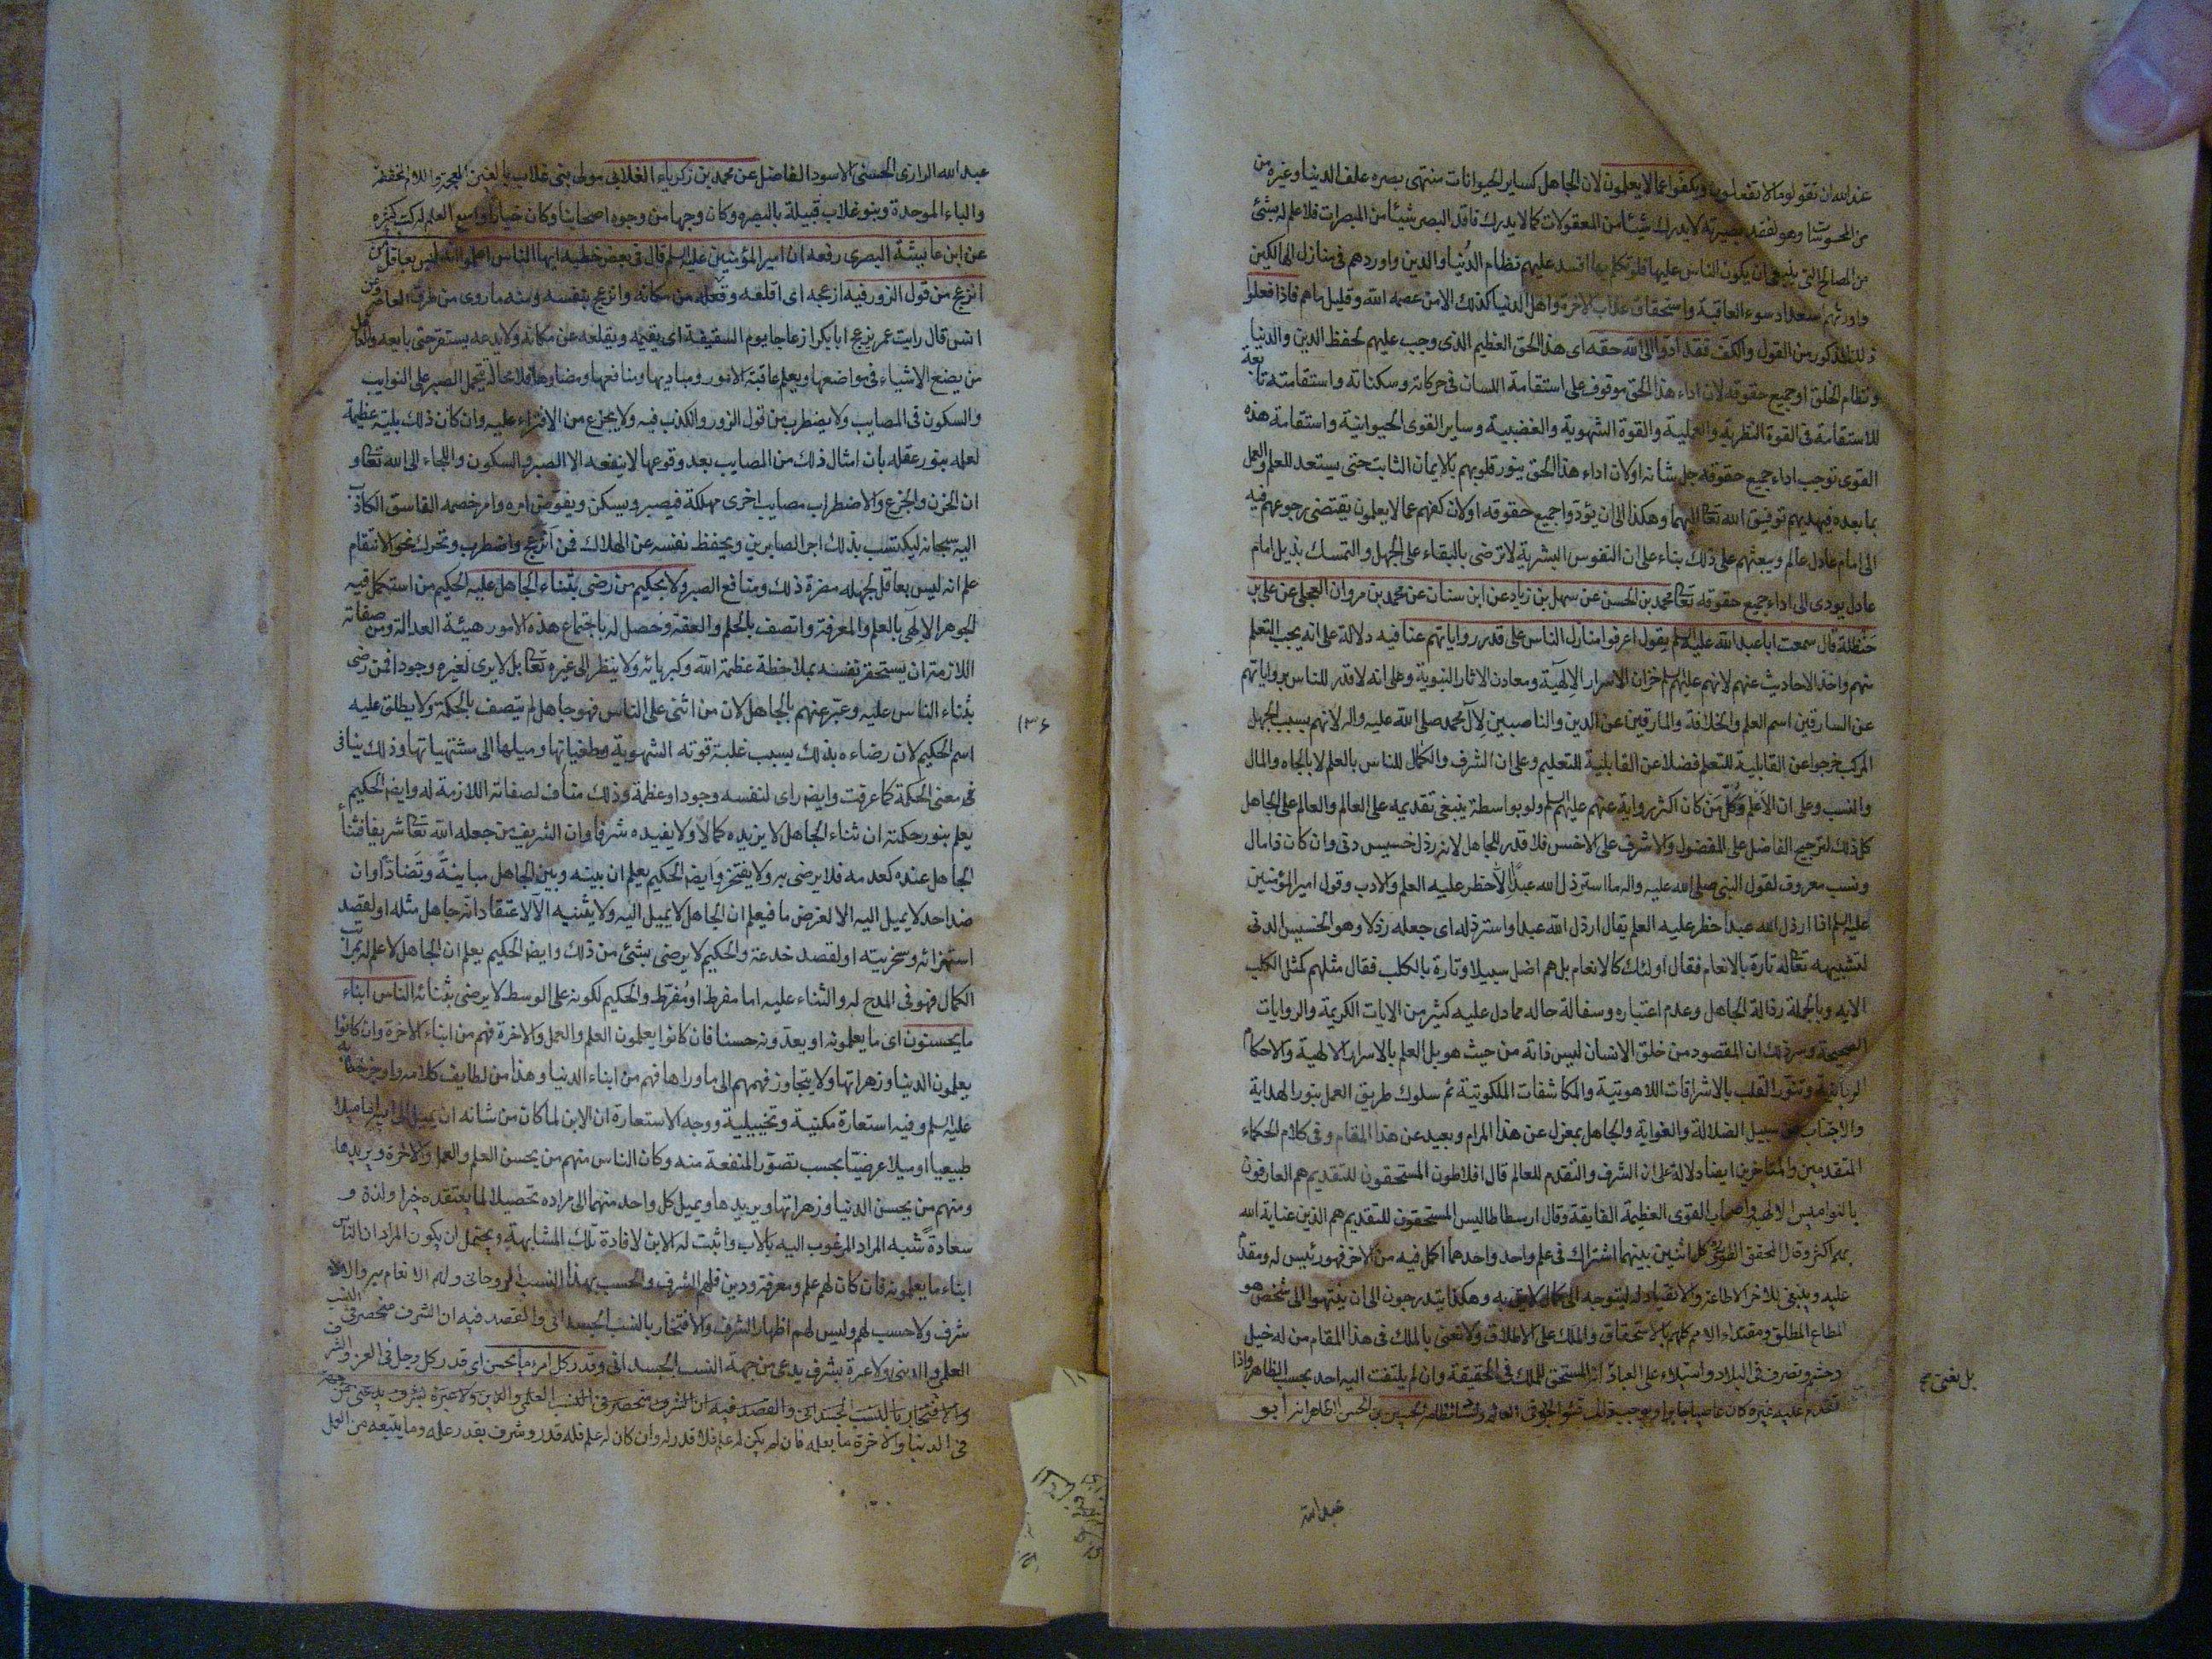 عند الله ان تقولوا ما لا تفعلون ويكفوا عما لا يعلمون لان الجاهل كساير الحيوانات منتهى بصره علف الدنيا وغيره من
من المحسوسات وهو لفقد بصيرته لا يدرك شيئا من المعقولات كما لا يدرك فاقد البصر شيئا من المبصرات فلا علم له بشئ
من المصالح التى ينبغى ان يكون الناس عليها فلو تكلم بها افسد عليهم نظام الدنيا والدين واوردهم فى منازل الهالكين
واورثهم سوء العاقبة واستحقاق عذاب الاخرة واهل الدنيا كذلك الا من عصمه الله وقليل ما هم فاذا فعلوا
ذلك المذكور من القول والكف فقد ادوا الى الله حقه اى هذا الحق العظيم الذى وجب عليهم لحفظ الدين والدنيا
ونظام الخلق او جميع حقوقه لان اداء هذا الحق موقوف على استقامة اللسان فى حركاته وسكناته واستقامته تابعة
للاستقامة فى القوة النظرية والعملية والقوة الشهوية والغضبية وساير القوى الحيوانية واستقامة هذه
القوى توجب اداء جميع حقوقه جل شانه او لان اداء هذا الحق ينور قلوبهم بالايمان الثابت حتى يستعد للعلم والعمل
بما بعده فيهديهم توفيق الله تعالى اليهما وهكذا الى ان يؤدوا جميع حقوقه او لان كفهم عما لا يعلمون يقتضى رجوعهم فيه
الى امام عادل عالم ويبعثهم على ذلك بناء على ان النفوس البشرية لا ترضى بالبقاء على الجهل والتمسك بذيل امام
عادل يودى الى اداء جميع حقوقه تعالى محمد بن الحسن عن سهل بن زياد عن ابن سنان عن محمد بن مروان العجلى عن على بن
حنظلة قال سمعت ابا عبد الله عليه السلم يقول اعرفوا منازل الناس على قدر رواياتهم عنا فيه دلالة على انه يجب التعلم
منهم واخذ الاحاديث عنهم لانهم عليهم السلم خزان الاسرار الالهية ومعادن الاثار النبوية وعلى انه لا قدر للناس بروايا تهم
عن السارقين اسم العلم والخلافة والمارقين عن الدين والناصبين لآل محمد صلى الله عليه واله لانهم بسبب الجهل
المركب خرجوا عن القابلية للتعلم فضلا عن القابلية للتعليم وعلى ان الشرف والكمال للناس بالعلم لا بالجاه والمال
والنسب وعلى ان الاعلم وكل من كان اكثر رواية عنهم عليهم السلم ولو بواسطة ينبغى تقديمه على العالم والعالم على الجاهل
كل ذلك لترجيح الفاضل على المفضول والاشرف على الاخس فلا قدر للجاهل لانه رذل خسيس دنى وان كان ذا مال
ونسب معروف لقول النبى صلى الله عليه واله ما استرذل الله عبدا الا حظر عليه العلم والادب وقول امير المؤمنين
عليه السلم اذا ارذل الله عبدا حظر عليه العلم يقال ارذل الله عبدا واسترذله اى جعله رذلا وهو الخسيس الدنى
لتشبيهه تعالى له تارة بالانعام فقال اولئك كالانعام بل هم اضل سبيلا وتارة بالكلب فقال مثلهم كمثل الكلب
الايه وبالجملة رذالة الجاهل وعدم اعتباره وسفالة حاله مما دل عليه كثير من الايات الكريمة والروايات
الصحيحة وسر ذلك ان المقصود من خلق الانسان ليس ذاته من حيث هو بل العلم بالاسرار الالهية والاحكام
الربانية وتنور القلب بالاشراقات اللاهوتية والمكاشفات الملكوتية ثم سلوك طريق العمل بنور الهداية
والاجتناب عن سبيل الضلالة والغواية والجاهل بمعزل عن هذا المرام وبعيد عن هذا المقام وفى كلام الحكماء
المتقدمين والمتاخرين ايضا دلالة على ان الشرف والتقدم للعالم قال افلاطون المستحقون للتقديم هم العارفون
بالنواميس الالهية واصحاب القوى العظيمة الفايقة وقال ارسطاطاليس المستحقون للتقديم هم الذين عناية الله
بهم اكثر وقال المحقق الطوسى كل اثنين بينهما اشتراك فى علم واحد واحدهما اكمل فيه من الاخر فهو رئيس له ومقدم
عليه وينبغى للاخر الاطاعة والانقياد له ليتوجه الى كمال لايق به وهكذا يتدرجون الى ان ينتهوا الى شخص هو
المطاع المطلق ومقتداء الامم كلهم بالاستحقاق والملك على الاطلاق ولا نعنى بالملك فى هذا المقام من له خيل
وحشم وتصرف فى البلاد واستيلاء على العباد انه المستحق للملك فى الحقيقة وان لم يلتفت اليه احد بحسب الظاهر واذا
بل نعنى
تقدم عليه غيره كان عاصيا جايرا الحسين بن الحسن الظاهر انه ابو
عبد الله
عبد الله الرازى الحسنى الاسود الفاضل عن محمد بن زكرياء الغلابى مولى بنى غلاب بالغين المعجمة واللام المخففة
والباء الموحدة وبنو غلاب قبيلة بالبصره وكان وجها من وجوه اصحابنا وكان خيارا واسع العلم له كتب كثيره
عن ابن عايشة البصرى رفعه ان امير المؤمنين عليه السلم قال فى بعض خطبه ايها الناس اعلموا انه ليس بعاقل من
انزعج من قول الزور فيه ازعجه اى اقلقه وقلعه من مكانه وانزعج بنفسه ومنه ما روى من طرق العامة عن
انس قال رايت عمر يزعج ابا بكر ازعاجا يوم السقيفة اى يقيمه ويقلعه عن مكانه ولا يدعه يستقر حتى بايعه والعاقل
من يضع الاشياء فى مواضعها ويعلم عاقبة الامور ومباديها ومنافعها ومضارها فلا محالة يتحمل الصبر على النوايب
والسكون فى المصايب ولا يضطرب من قول الزور والكذب فيه ولا يجزع من الافتراء عليه وان كان ذلك بلية عظيمة
لعلمه بنور عقله بان امثال ذلك من المصايب بعد وقوعها لا ينفعه الا الصبر والسكون واللجاء الى الله تعالى و
ان الحزن والجزع والاضطراب مصايب اخرى مهلكة فيصبر ويسكن ويفوض امره وامر خصمه الفاسق الكاذب
اليه سبحانه ليكتسب بذلك اجر الصابرين ويحفظ نفسه عن الهلاك فمن انزعج واضطرب وتحرك نحو الانتقام
علم انه ليس بعاقل لجهله مضرة ذلك ومنافع الصبر ولا بحكيم من رضى بثناء الجاهل عليه الحكيم من استكمل فيه
الجوهر الالهى بالعلم والمعرفة واتصف بالحلم والعفة وحصل له باجتماع هذه الامور هيئة العدالة ومن صفاته
اللازمة ان يستحقر نفسه بملاحظة عظمة الله وكبريائه ولا ينظر الى غيره تعالى بل لا يرى لغيره وجودا فمن رضى
بثناء الناس عليه وعبر عنهم بالجاهل لان من اثنى على الناس فهو جاهل لم يتصف بالحكمة ولا يطلق عليه
اسم الحكيم لان رضاءه بذلك بسبب غلبة قوته الشهوية وطغيانها وميلها الى مشتهياتها وذلك ينافى
فى معنى الحكمة كما عرفت وايضا راى لنفسه وجودا وعظمة وذلك مناف لصفاته اللازمة له وايضا الحكيم
يعلم بنور حكمته ان ثناء الجاهل لا يزيده كمالا ولا يفيده شرفا وان الشريف من جعله الله تعالى شريفا فثناء
الجاهل عنده كعدمه فلا يرضى به ولا يفتخر وايضا الحكيم يعلم ان بينه وبين الجاهل مباينة وتضادا وان
ضد احد لا يميل اليه الا لغرض ما فيعلم ان الجاهل لا يميل اليه ولا يثنيه الا لاعتقاد انه جاهل مثله او لقصد
استهزائه وسخريته او لقصد خدعته والحكيم لا يرضى بشئ من ذلك وايضا الحكيم يعلم ان الجاهل لا علم له بمراتب
الكمال فهو فى المدح له والثناء عليه اما مفرط او مفرط والحكيم لكونه على الوسط لا يرضى بثنائه الناس ابناء
ما يحسنون اى ما يعلمونه او يعدونه حسنا فان كانوا يعلمون العلم والعمل والاخرة فهم من ابناء الاخرة وان كانوا
يعلمون الدنيا وزهراتها ولا يتجاوز فهمهم الى ما وراها فهم من ابناء الدنيا وهذا من لطايف كلامه
عليه السلم وفيه استعارة مكنية وتخييلية ووجه الاستعارة ان الابن لما كان من شانه ان يميل الى ابيه اما ميلا
طبيعيا او ميلا عرضيا بحسب تصور المنفعة منه وكان الناس منهم من يحسن العلم والعمل والاخرة ويريدها
ومنهم من يحسن الدنيا وزهراتها ويريدها ويميل كل واحد منهما الى مراده تحصيلا لما يعتقده خيرا ولذة و
سعادة شبه المراد المرغوب اليه بالاب واثبت له الابن لافادة تلك المشابهة ويحتمل ان يكون المراد ان الناس
ابناء ما يعلمونه فان كان لهم علم ومعرفة ودين فلهم الشرف والحسب بهذا النسب الروحانى
شرف ولا حسب لهم وليس لهم اظهار الشرف والافتخار بالنسب الجسدانى والقصد فيه ان الشرف منحصر فى النسب
العلمى والدينى ولا عبرة بشرف يدعى من جهة النسب الجسدانى وقدر كل امرء ما يحسن اى قدر كل رجل فى العز والشرف
والافتخار بالنسب الجسدانى والقصد فيه ان الشرف منحصر فى النسب العلمى والدين ولا عبرة بشرف يدعى من جهة
فى الدنيا والاخرة ما يعلمه فان لم يكن له علم فلا قدر له وان كان له علم فله قدر وشرف بقدر علمه وما يتبعه من العمل
١٣٦